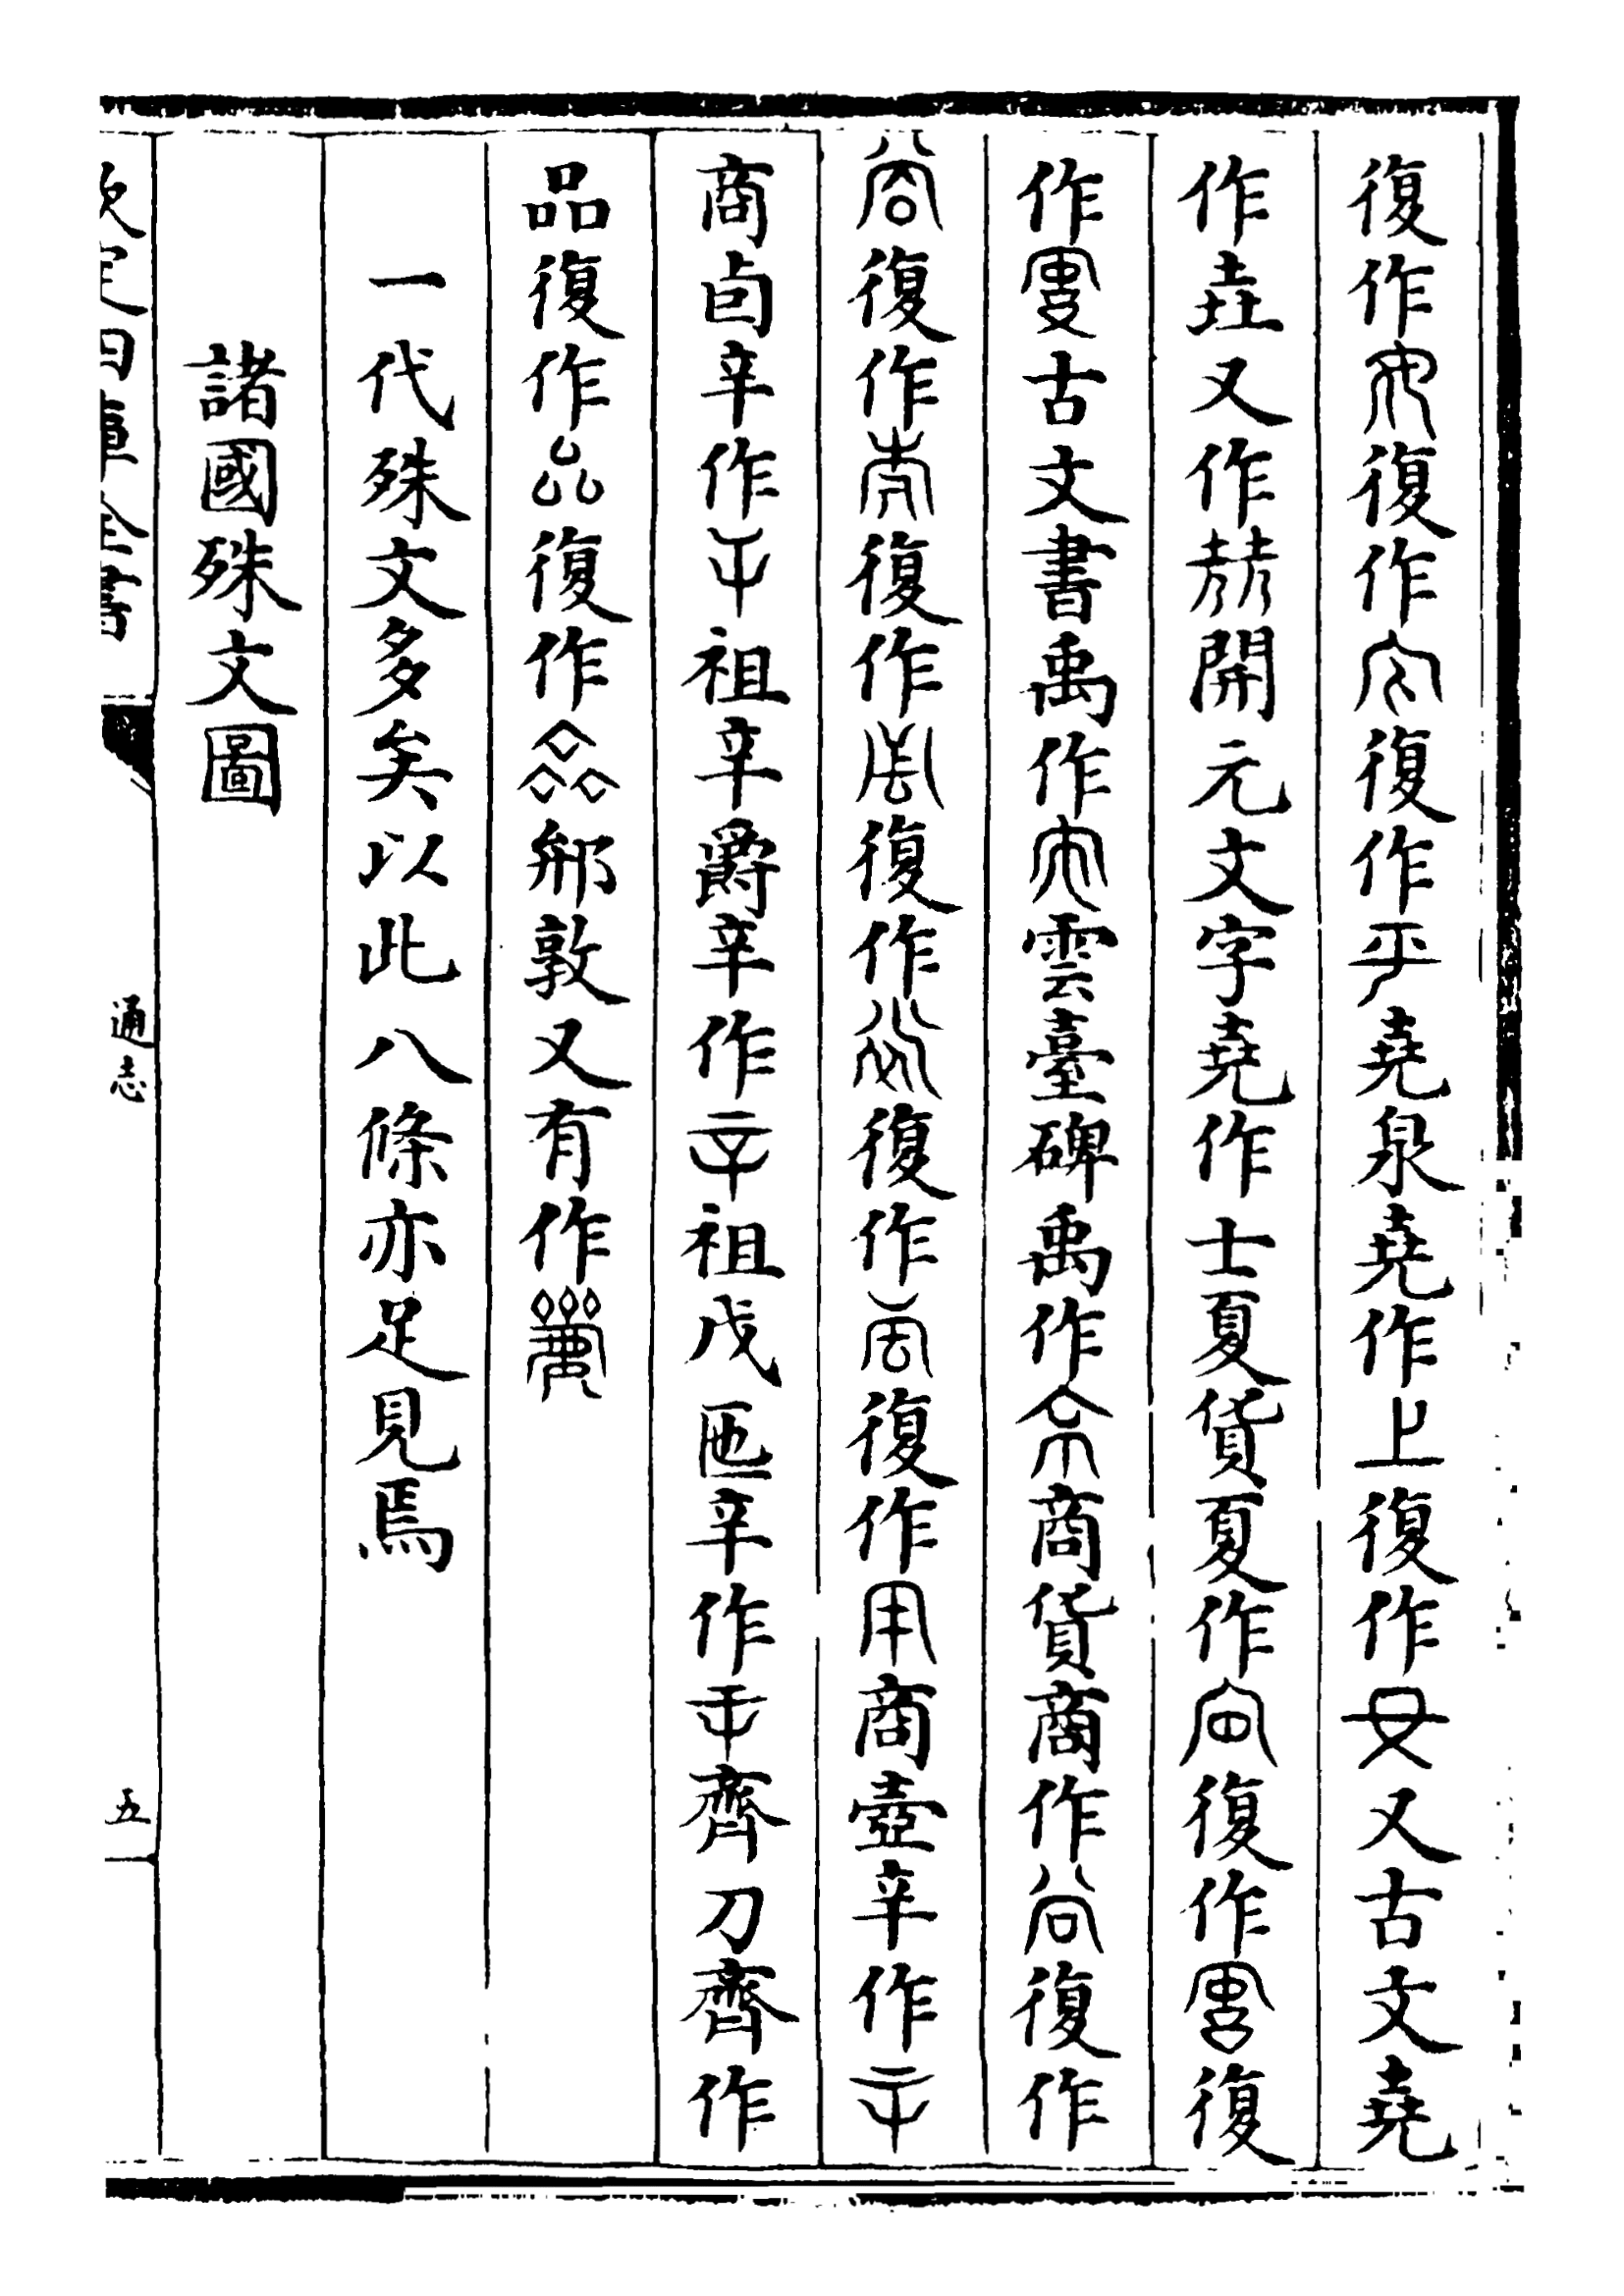 復作復作復作堯泉堯作上復作又古文堯
作垚又作開元文字堯作士夏貨夏作復作復
作古文書禹作雲臺碑禹作商貨商作復作
復作復作復作復作復作商壺辛作
商卣辛作祖辛爵辛作祖戊匜辛作齊刀齊作
品復作復作邢敦又有作
一代殊文多矣以此八條亦足見焉
諸國殊文圖
欽定四庫全書
通志
五